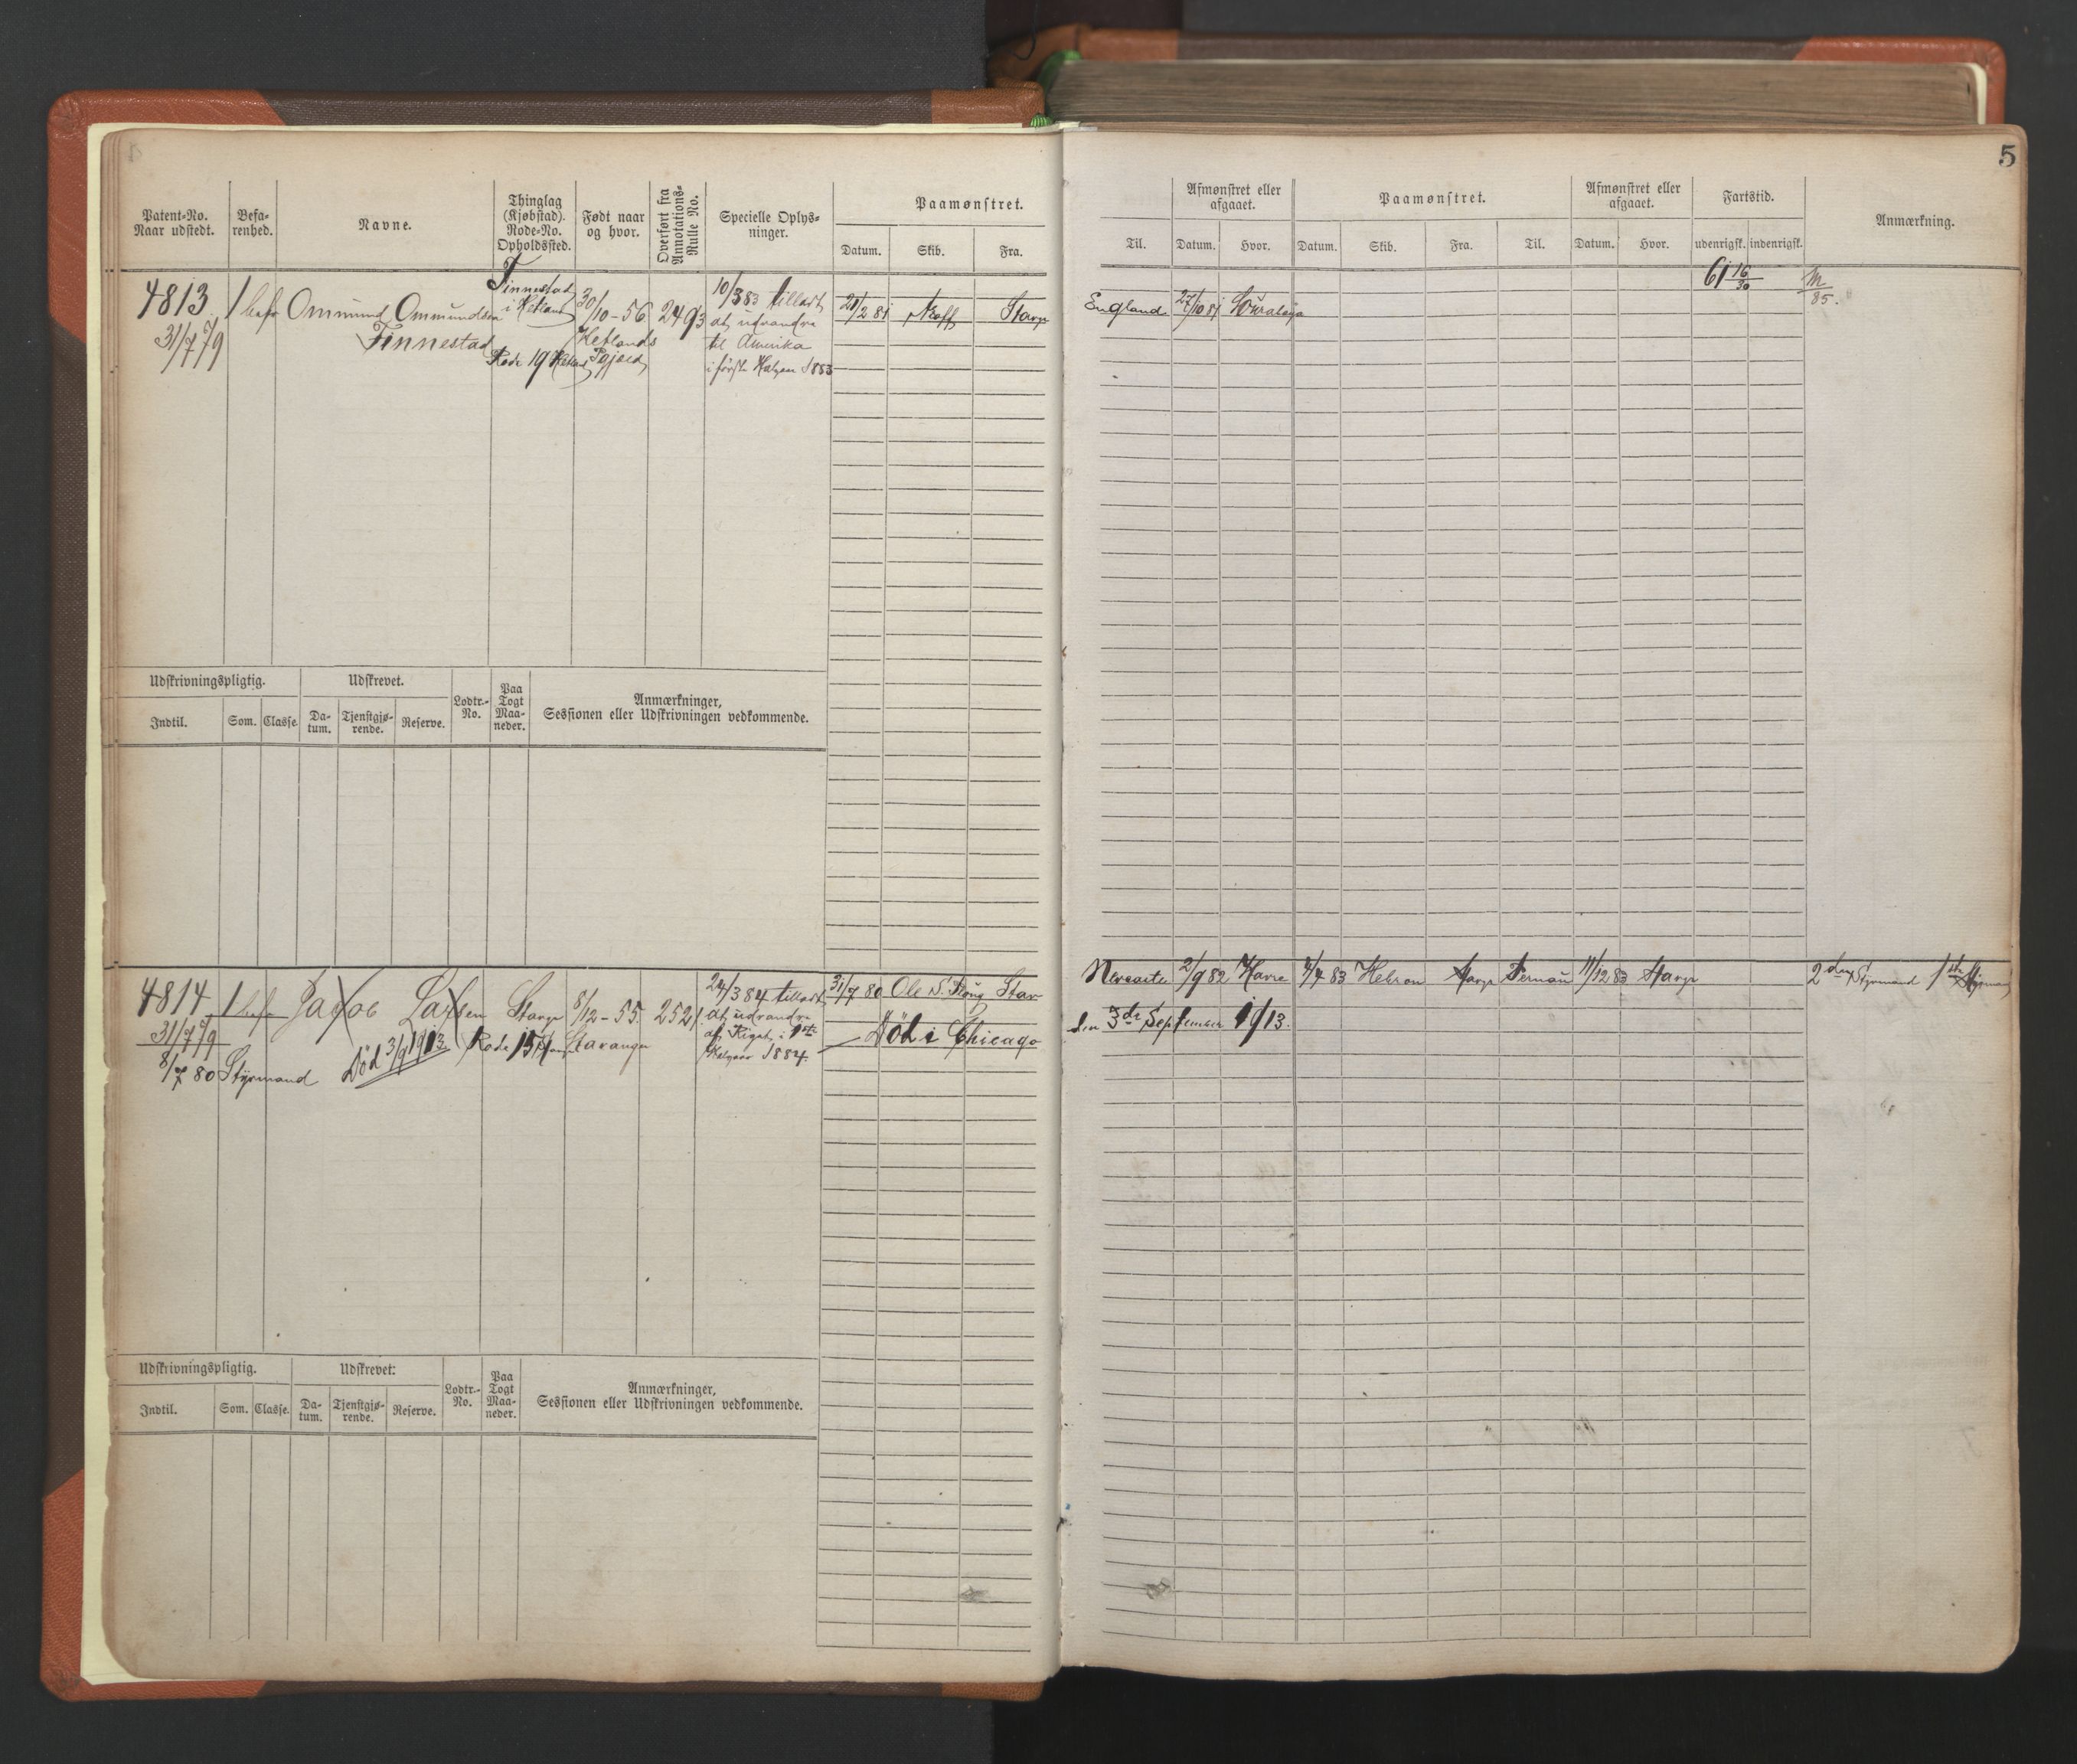 5
Patent-No. Naar udstedt.
Befa-renhed.
Navne.
Thinglag (Kjøbstad). Rode-No. Opholdssted.
Født naar og hvor.
Overført fra Annotations-Rulle No.
Specielle Oplys-ninger.
Paamønstret.
Datum. Skib. Fra.
Til.
Afmønstret eller afgaaet.
Datum. Hvor.
Paamønstret.
Datum. Skib. Fra. Til.
Afmønstret eller afgaaet.
Datum. Hvor.
Fartstid.
udenrigsk. indenrigsk.
Anmærkning.
4813
31/7 79
1 bef
Ommund Ommundsen
Finnestad
Finnestad
i Hetland
Rode 19
30/10-56
Hetlands
2493
10/3 83 tilladt
at udvandre
til Amerika
i første Halvaar 1883
21/2 81
Stavgr
England
27/10 81
61 16/30
M/85.
Udskrivningspligtig.
Udskrevet.
Indtil. Som. Classe.
Da-tum. Tjenstgjø-rende. Reserve.
Lodtr.-No.
Paa Togt Maa-neder.
Anmærkninger,
Sessionen eller Udskrivningen vedkommende.
4814
31/7 79
8/7 80 Styrmand
1 bef
Jakob Laxsen
Død 3/9 1913
Stavgr
Rode 15
8/12-55
Stavanger
2521
24/3 84 tilladt
at udvandre
af Riget i 1ste
Halvaar 1884
31/7 80 Stav-
Død i Chicago
den 3de September 1913.
2/9 82 Havre
4/4 83 Hebron Stavgr Pernau
11/12 83 Stavgr
2den Styrmand
Udskrivningspligtig.
Udskrevet:
Indtil. Som. Classe.
Da-tum. Tjenstgjø-rende. Reserve.
Lodtr.-No.
Paa Togt Maa-neder.
Anmærkninger,
Sessionen eller Udskrivningen vedkommende.